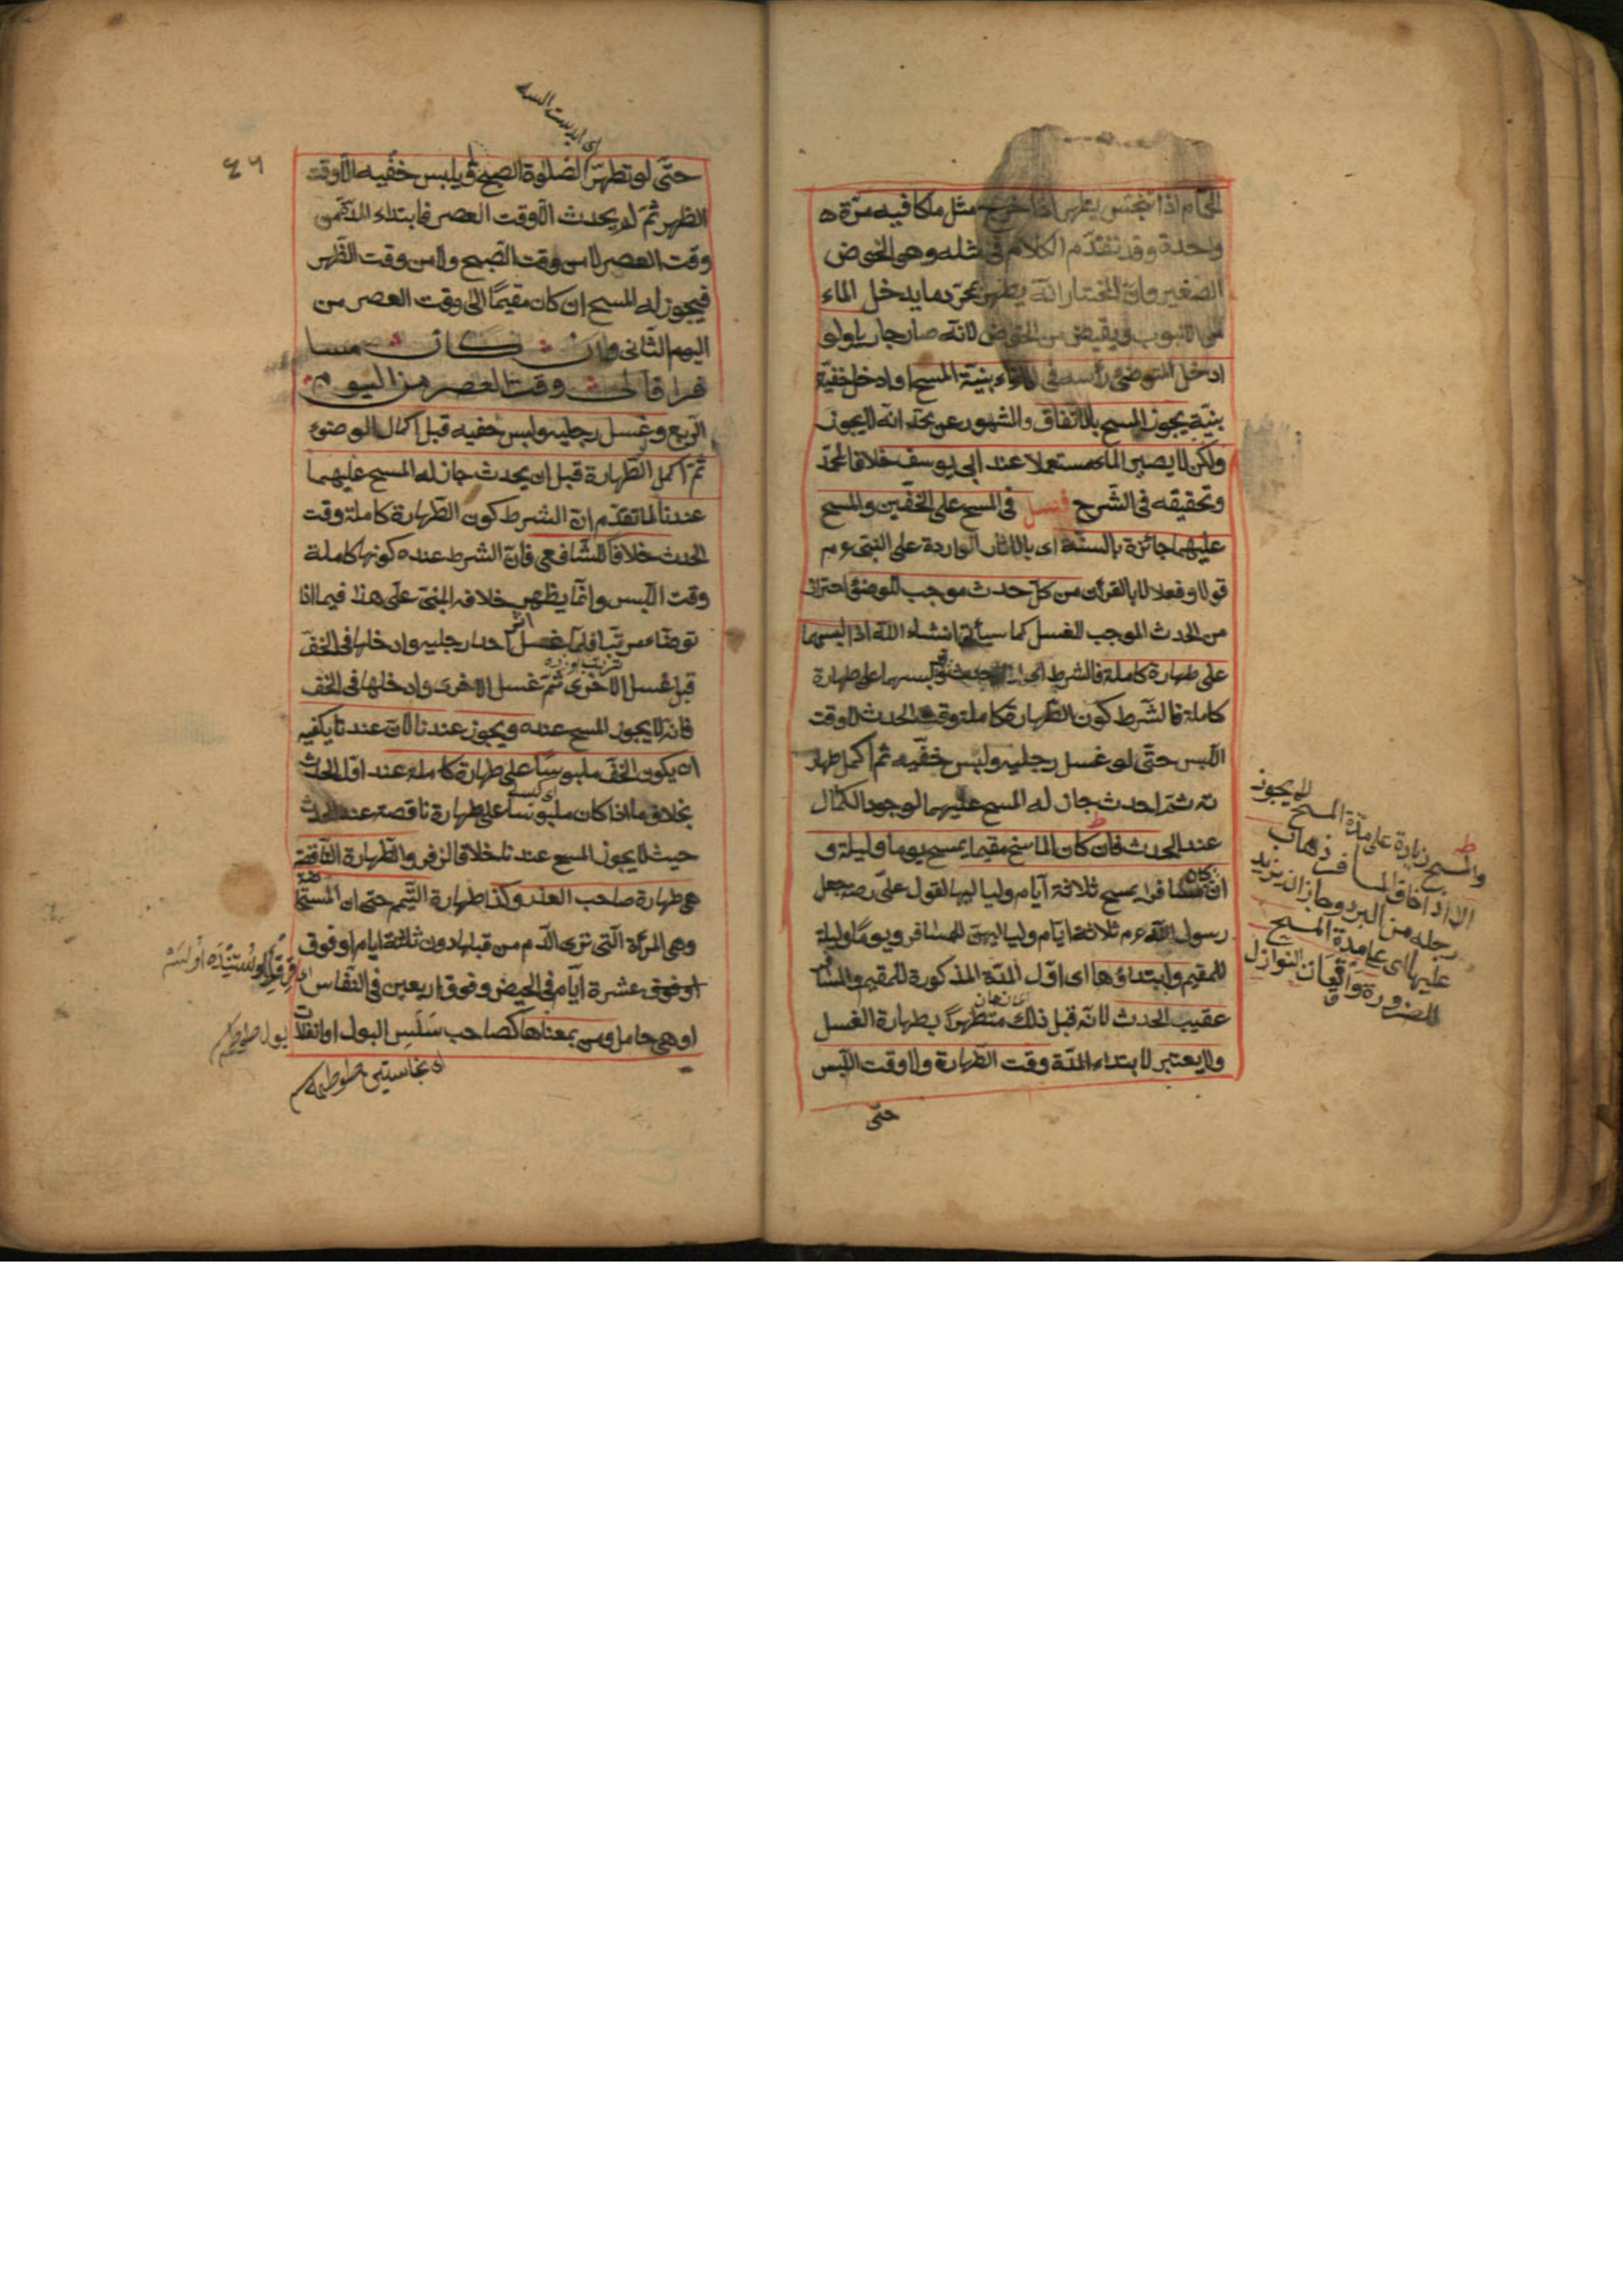 الحمام اذا تنجس يطهر اذا خرج مثل ما كا فيه مرة ه
واحدة وقد تقدم الكلام فى مثله وهو الحوض
الصغير وان المختار انه يطهر بمجرد ما يدخل الماء
من الانبوب ويفيض من الحوض لانه صار جار يا ولو
ادخل المتوضئ رأسه فى الاناء بنية المسح او ادخل خفيه
بنية يجوز المسح بالاتفاق والمشهور عن محمد انه لا يجوز
ولكن لا يصير الماء مستعملا عند ابى يوسف خلافا لمحمد
وتحقيقه فى الشرح فصل فى المسح على الخفين والمسح
عليهما جائزة بالسنة اى بالاثار الواردة على النبى ءم
قولا وفعلا لا بالقرآن من كل حدث موجب للوضوء احترازا
من الحدث الموجب الغسل كما سيأتى انشاء الله اذا لبسهما
على طهارة كاملة فالشرط لبسهما على طهارة
كاملة فالشرط كون الطهارة كاملة وقت الحدث لا وقت
اللبس حتى لو غسل رجليه ولبس خفيه ثم اكمل طهار
ته ثم احدث جاز له المسح عليهما لوجود الكمال
عند الحدث فان كان الماسح مقيما يمسح يوما وليلة و
ان كان مسافرا يمسح ثلاثة ايام ولياليها لقول على رضه جعل
رسول الله ءم ثلاثة ايام ولياليهن للمسافر ويوما وليلة
للمقيم وابتداؤها اى اول المدة المذكورة للمقيم والمسافر
عقيب الحدث لانه قبل ذلك متطهرا بطهارة الغسل
ولا يعتبر لابتداء المدة وقت الطهارة ولا وقت اللبس
حتى
لا يجوز
والمسح زيادة على مدة المسح
الا اذا خاف المسافر ذهاب
رجله من البرد وجاز ان يزيد
عليها اى على مدة المسح
للضرورة واقعات النوازل
٤٦
حتى لو تطهر لصلوة الصبح ويلبس خفيه الا وقت
الظهر ثم لم يحدث الا وقت العصر فابتداء المدة من
وقت العصر لا من وقت الصبح ولا من وقت الظهر
فيجوز له المسح ان كان مقيما الى وقت العصر من
اليوم الثانى وان كان مسا
فرا فالى وقت العصر من اليوم
الربع وغسل رجليه ولبس خفيه قبل اكمال الوضوء
ثم اكمل الطهارة قبل ان يحدث جاز له المسح عليهما
عندنا لما تقدم ان الشرط كون الطهارة كاملة وقت
الحدث خلافا للشافعى فان الشرط عنده كونها كاملة
وقت اللبس وانما يظهر خلافه المبنى على هذا فيما اذا
توضاء مرتبا فلما غسل احدا رجليه وادخلها فى الخف
قبل غسل الاخرى ثم غسل الاخرى وادخلها فى الخف
فانه لا يجوز المسح عنده ويجوز عندنا لان عندنا يكفيه
ان يكون الخف ملبوسا على طهارة كاملة عند اول الحدث
بخلاف ما اذا كان ملبوسا على طهارة ناقصة عند الحدث
حيث لا يجوز المسح عندنا خلافا لزفر والطهارة الناقصة
هى طهارة صاحب العذر وكذا طهارة التيمم حتى ان المستحاضة
وهى المرأة التى ترى الدم من قبلها دون ثلثة ايام او فوق
او فوق عشرة ايام فى الحيض وفوق اربعين فى النفاس
او هى حامل ومن بمعناها كصاحب سلس البول او انفلات